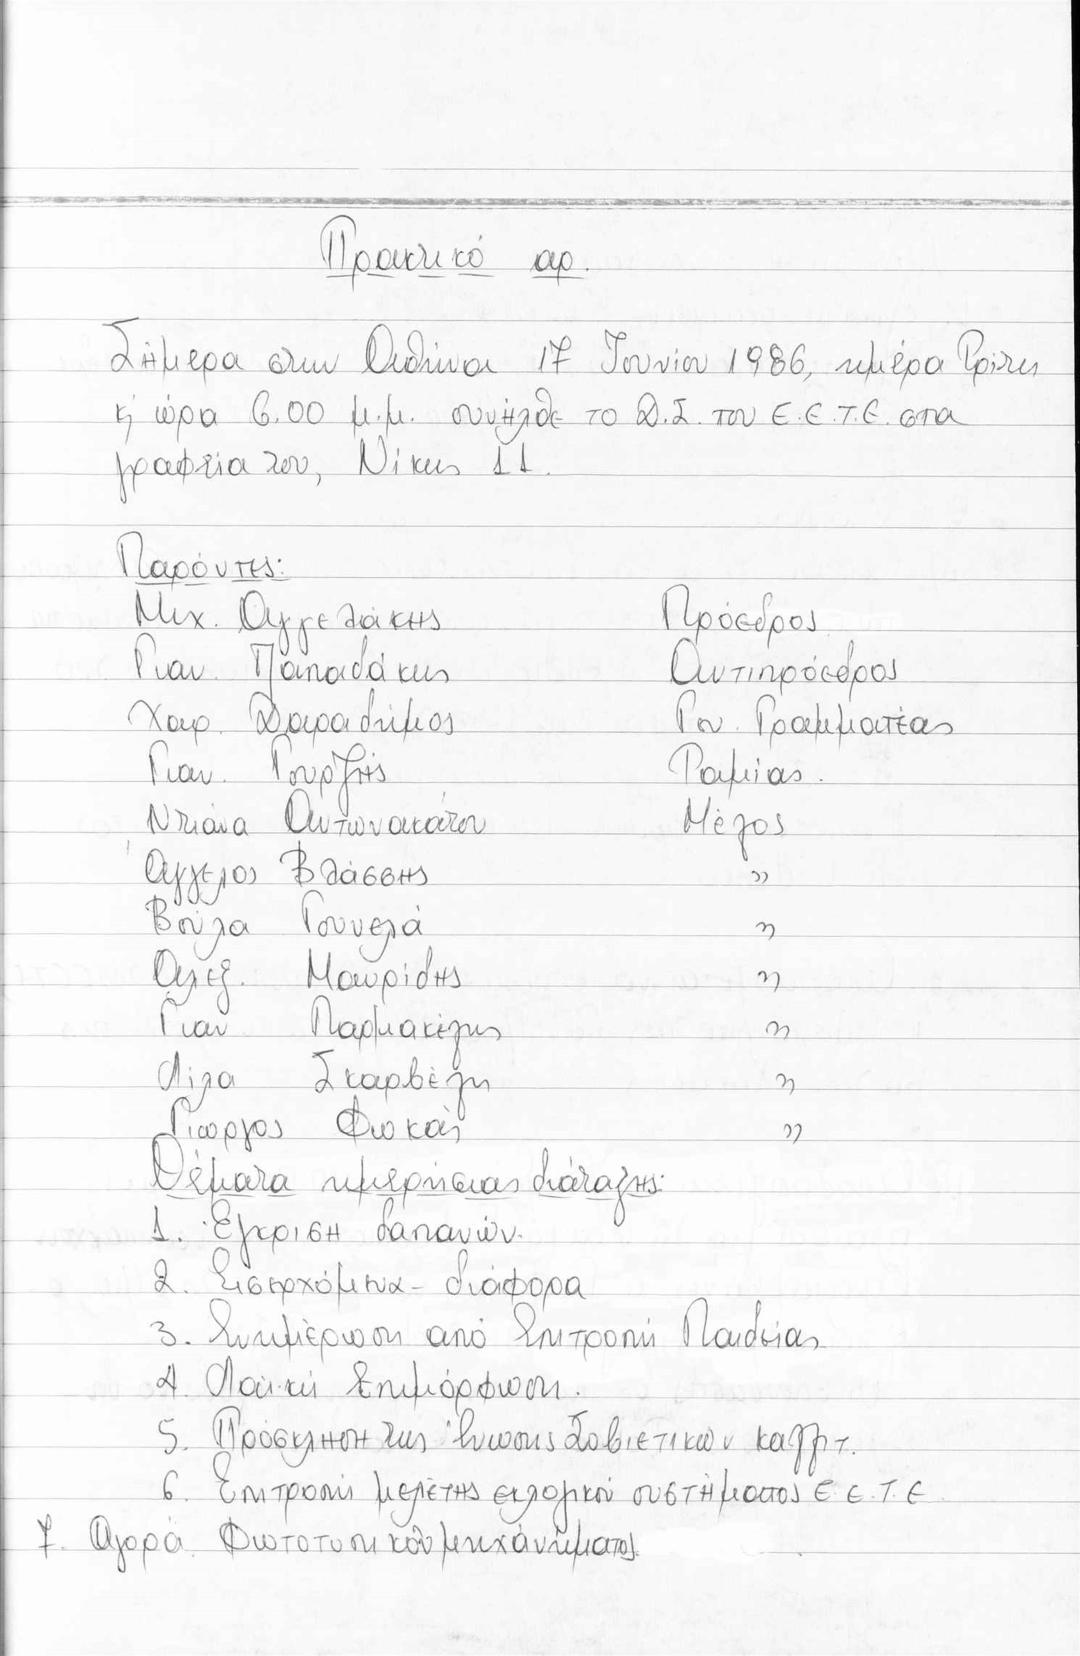 Πρακτικό αρ.
Σήμερα στην Αθήνα 17 Ιουνίου 1986, ημέρα Τρίτη
κ' ώρα 6.00 μ.μ. συνήλθε το Δ.Σ. του Ε.Ε.Τ.Ε. στα
γραφεία του, Νίκης 11.
Παρόντες:
Μιχ. Αγγελάκης Πρόεδρος
Γιαν. Παπαδάκης Αντιπρόεδρος
Χαρ. Δαραδήμος Γεν. Γραμματέας
Γιαν. Γουρζής Ταμίας.
Ντιάνα Αντωνακάτου Μέλος
Άγγελος Βλάσσης "
Βούλα Γουνελά "
Αλεξ. Μαυρίδης "
Γιαν Παρμακέλης "
Λίλα Σκαρβέλη "
Γιώργος Φωκάς "
Θέματα ημερήσιας διάταξης:
1. Έγκριση δαπανών.
2. Εισερχόμενα - διάφορα
3. Ενημέρωση από Επιτροπή Παιδείας
4. Λαϊκή Επιμόρφωση.
5. Πρόσκληση της Ένωσης Σοβιετικών καλλιτ.
6. Επιτροπή μελέτης εκλογικού συστήματος Ε.Ε.Τ.Ε
7. Αγορά Φωτοτυπικού μηχανήματος.